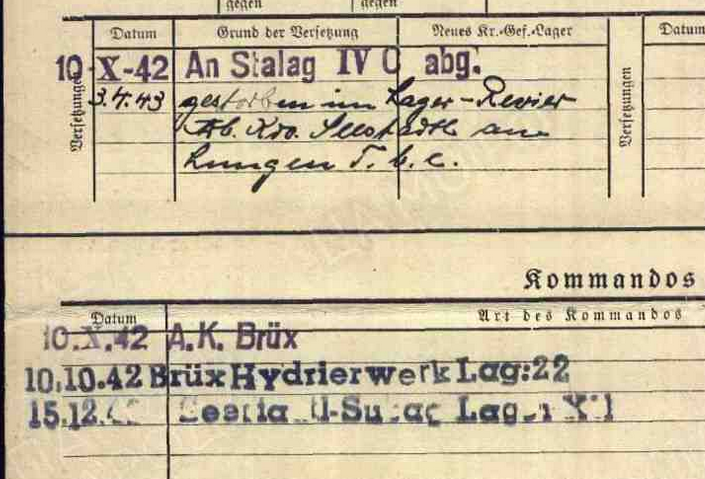 gegen gegen
Datum Grund der Versetzung Neues Kr.-Gef.-Lager Datum
Versetzungen
10-X-42 An Stalag IV C abg.
3.4.43 gestorben im Lager-Revier
Ab. Kdo. Seestadtl an
Lungen T. b. c.
Versetzungen
Kommandos
Datum Art des Kommandos
10.X.42 A.K. Brüx
10.10.42 Brüx Hydrierwerk Lag:22
15.12. Lager